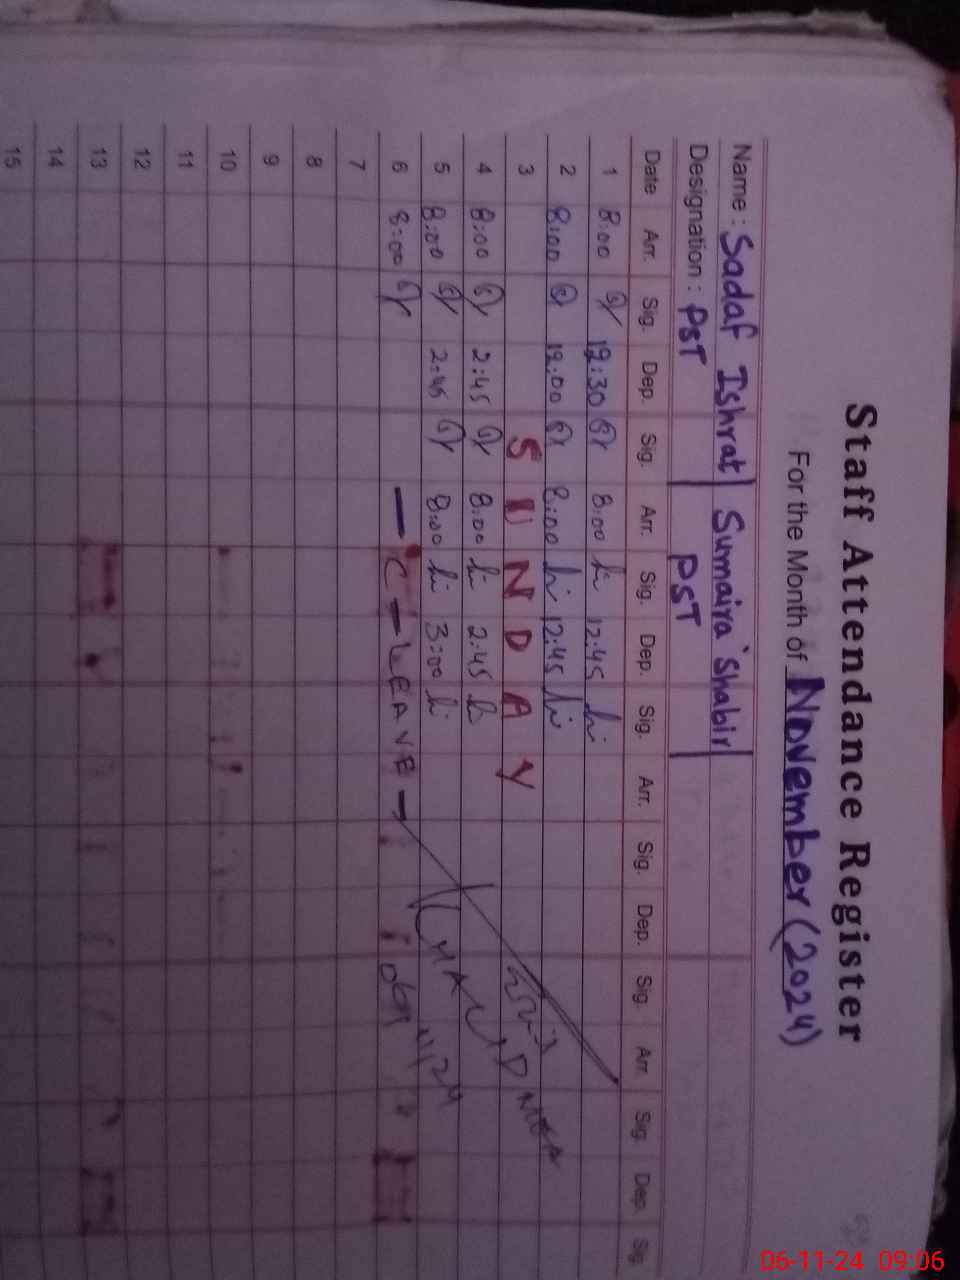 Staff Attendance Register
For the Month of November (2024)
Name : Sadaf Ishrat Sumaira Shabir
Designation : PST PST
Date Arr. Sig. Dep. Sig. Arr. Sig. Dep. Sig. Arr. Sig. Dep. Sig. Arr. Sig. Dep. Sig.
1 8:00 12:30 8:00 12:45
2 8:00 12:00 8:00 12:45
3 SUNDAY
4 8:00 2:45 8:00 2:45
5 8:00 2:45 8:00 3:00
6 8:00 — C - LEAVE —
7
8
9
10
11
12
13
14
15
06-11-24 09:06